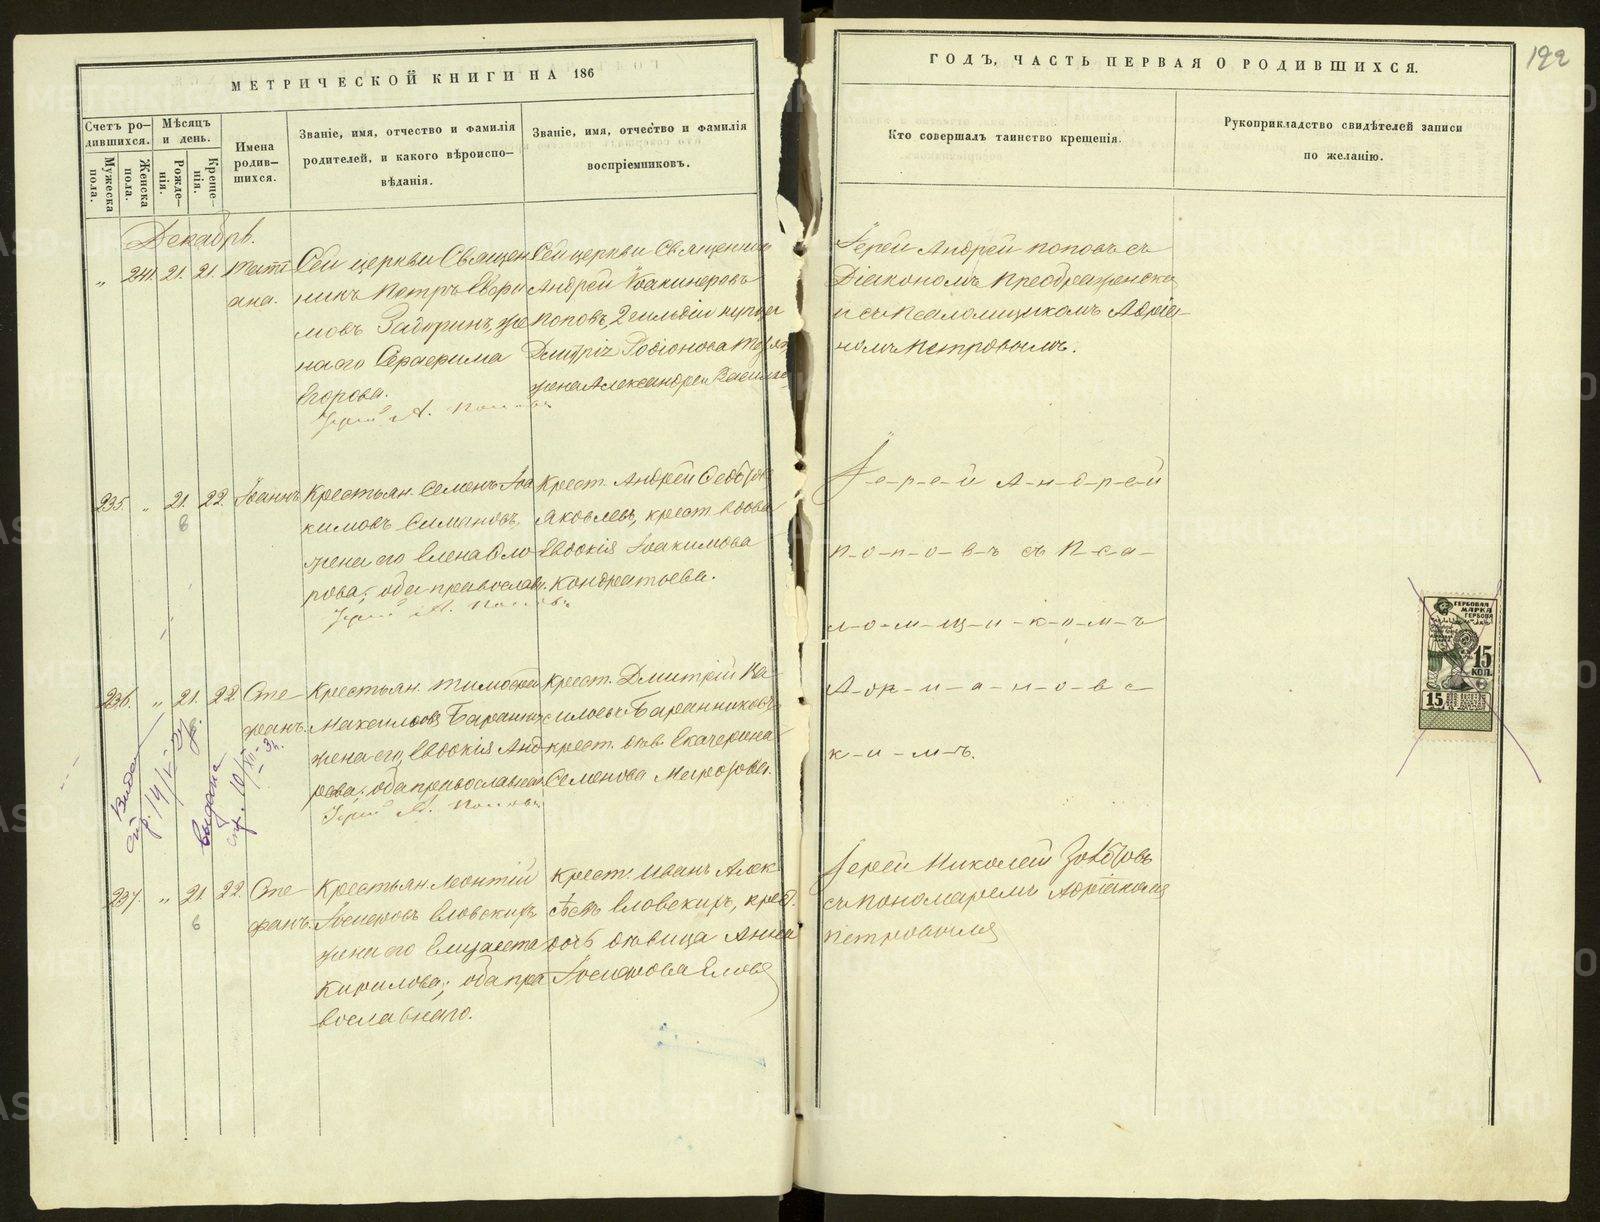 МЕТРИЧЕСКОЙ КНИГИ НА 186
ГОДЪ, ЧАСТЬ ПЕРВАЯ О РОДИВШИХСЯ.
122
Счетъ ро-
дившихся.
Мужеска
пола.
Женска
пола.
Мѣсяцъ
и день.
Рожде-
нія.
Креще-
нія.
Имена
родив-
шихся.
Званіе, имя, отчество и фамилія
родителей, и какого вѣроиспо-
вѣданія.
Званіе, имя, отчество и фамилія
воспріемниковъ.
Кто совершалъ таинство крещенія.
Рукоприкладство свидѣтелей записи
по желанію.
Декабрь.
„ 241. 21. 21.
ана.
Сей церкви Священ
никъ Петръ
мовъ
наго Серафима
Егорова.
Іерей А. Поповъ
Сей церкви Священник
Андрей Іоакинеровъ
Поповъ, 2 гильдіи купца
Дмитрія Родіонова
жена Александра Василье
Іерей Андрей Поповъ съ
Діакономъ Преображенск
и съ Псаломщикомъ Адріа-
номъ Петровымъ.
235. „ 21. 22. Іоаннъ
6
Крестьян. Семенъ Іоа
кимовъ Симановъ,
жена его Елена Ѳло
рова; оба православн.
Іерей А. Поповъ
Крест. Андрей Ѳедоров
Яковлевъ, крест. вдова
Евдокія Іоакимова
Кондратьева.
І-е-р-е-й А-н-д-р-е-й
П-о-п-о-в-ъ съ П-с-а-
л-о-м-щ-и-к-о-м-ъ
к-и-м-ъ.
236. „ 21. 22. Сте-
фанъ.
Крестьян. Тимофей
жена его, Евдокія Анд
реева; оба православнаго
Іерей А. Поповъ
Крест. Дмитрій Ва
сильевъ Баранниковъ,
крест. дѣв. Екатерина
Семенова Морозова.
Выдана
спр. 14/V-27 г.
выдана
237. „ 21. 22. Сте-
6
фанъ.
Крестьян. Леонтій
Іосифовъ Еловскихъ,
жена его Елизавета
Кирилова; оба пра
вославнаго.
Крест. Иванъ Алек
сѣевъ Еловскихъ, крес.
дочь дѣвица Анна
Іосифова Еловс
Іерей Николай Золотовъ
съ Пономаремъ Адріаномъ
Петровымъ
ГЕРБОВАЯ
МАРКА
15
КОП.
15
METRIKI.GASO-URAL.RU